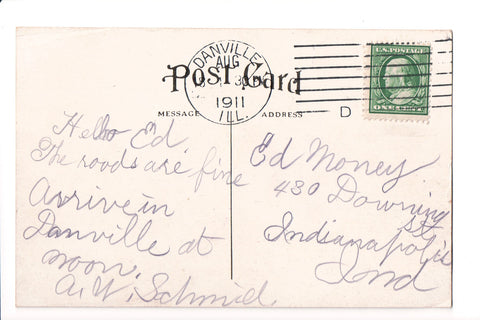 DANVILLE
AUG
1911
ILL.
D
U.S. POSTAGE
ONE CENT
Post Card
MESSAGE
ADDRESS
Hello Ed.
The roads are fine
Arrive in
Danville at
noon.
A.W. Schmid.
Ed Money
430 Downing
St
Indianapolis
Ind